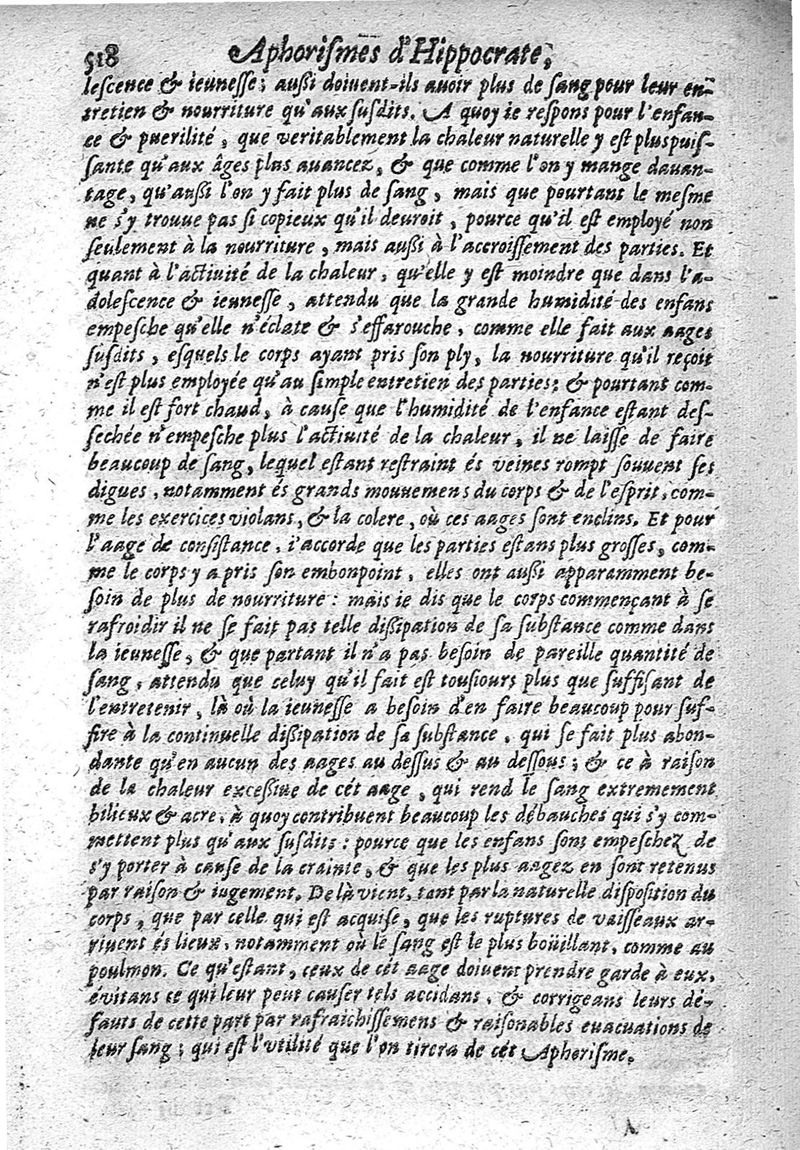 518 Aphorismes d'Hippocrate,
lescence & ieunesse; außi doiuent-ils auoir plus de sang pour leur en-
tretien & nourriture qu'aux susdits. A quoy ie respons pour l'enfan-
ce & puerilité, que veritablement la chaleur naturelle y est plus puis-
sante qu'aux âges plus auancez, & que comme l'on y mange dauan-
tage, qu'außi l'on y fait plus de sang, mais que pourtant le mesme
ne s'y trouue pas si copieux qu'il deuroit, pource qu'il est employé non
seulement à la nourriture, mais außi à l'accroissement des parties. Et
quant à l'actiuité de la chaleur, qu'elle y est moindre que dans l'a-
dolescence & ieunesse, attendu que la grande humidité des enfans
empesche qu'elle n'éclate & s'effarouche, comme elle fait aux aages
susdits, esquels le corps ayant pris son ply, la nourriture qu'il reçoit
n'est plus employée qu'au simple entretien des parties; & pourtant com-
me il est fort chaud, à cause que l'humidité de l'enfance estant des-
sechée n'empesche plus l'actiuité de la chaleur, il ne laisse de faire
beaucoup de sang, lequel estant restraint és veines rompt souuent ses
digues, notamment és grands mouuemens du corps & de l'esprit, com-
me les exercices violans, & la colere, où ces aages sont enclins. Et pour
l'aage de consistance, i'accorde que les parties estans plus grosses, com-
me le corps y a pris son embonpoint, elles ont außi apparamment be-
soin de plus de nourriture: mais ie dis que le corps commençant à se
rafroidir il ne se fait pas telle dißipation de sa substance comme dans
la ieunesse, & que partant il n'a pas besoin de pareille quantité de
sang, attendu que celuy qu'il fait est tousiours plus que suffisant de
l'entretenir, là où la ieunesse a besoin d'en faire beaucoup pour suf-
fire à la continuelle dißipation de sa substance, qui se fait plus abon-
dante qu'en aucun des aages au dessus & au dessous; & ce à raison
de la chaleur exceßiue de cét aage, qui rend le sang extremement
bilieux & acre, à quoy contribuent beaucoup les débauches qui s'y com-
mettent plus qu'aux susdits: pource que les enfans sont empeschez de
s'y porter à cause de la crainte, & que les plus aagez en sont retenus
par raison & iugement. De là vient, tant par la naturelle disposition du
corps, que par celle qui est acquise, que les ruptures de vaisseaux ar-
riuent és lieux, notamment où le sang est le plus boüillant, comme au
poulmon. Ce qu'estant, ceux de cét aage doiuent prendre garde à eux,
éuitans ce qui leur peut causer tels accidans, & corrigeans leurs dé-
fauts de cette part par rafraichissemens & raisonables euacuations de
leur sang; qui est l'vtilité que l'on tirera de cét Aphorisme.